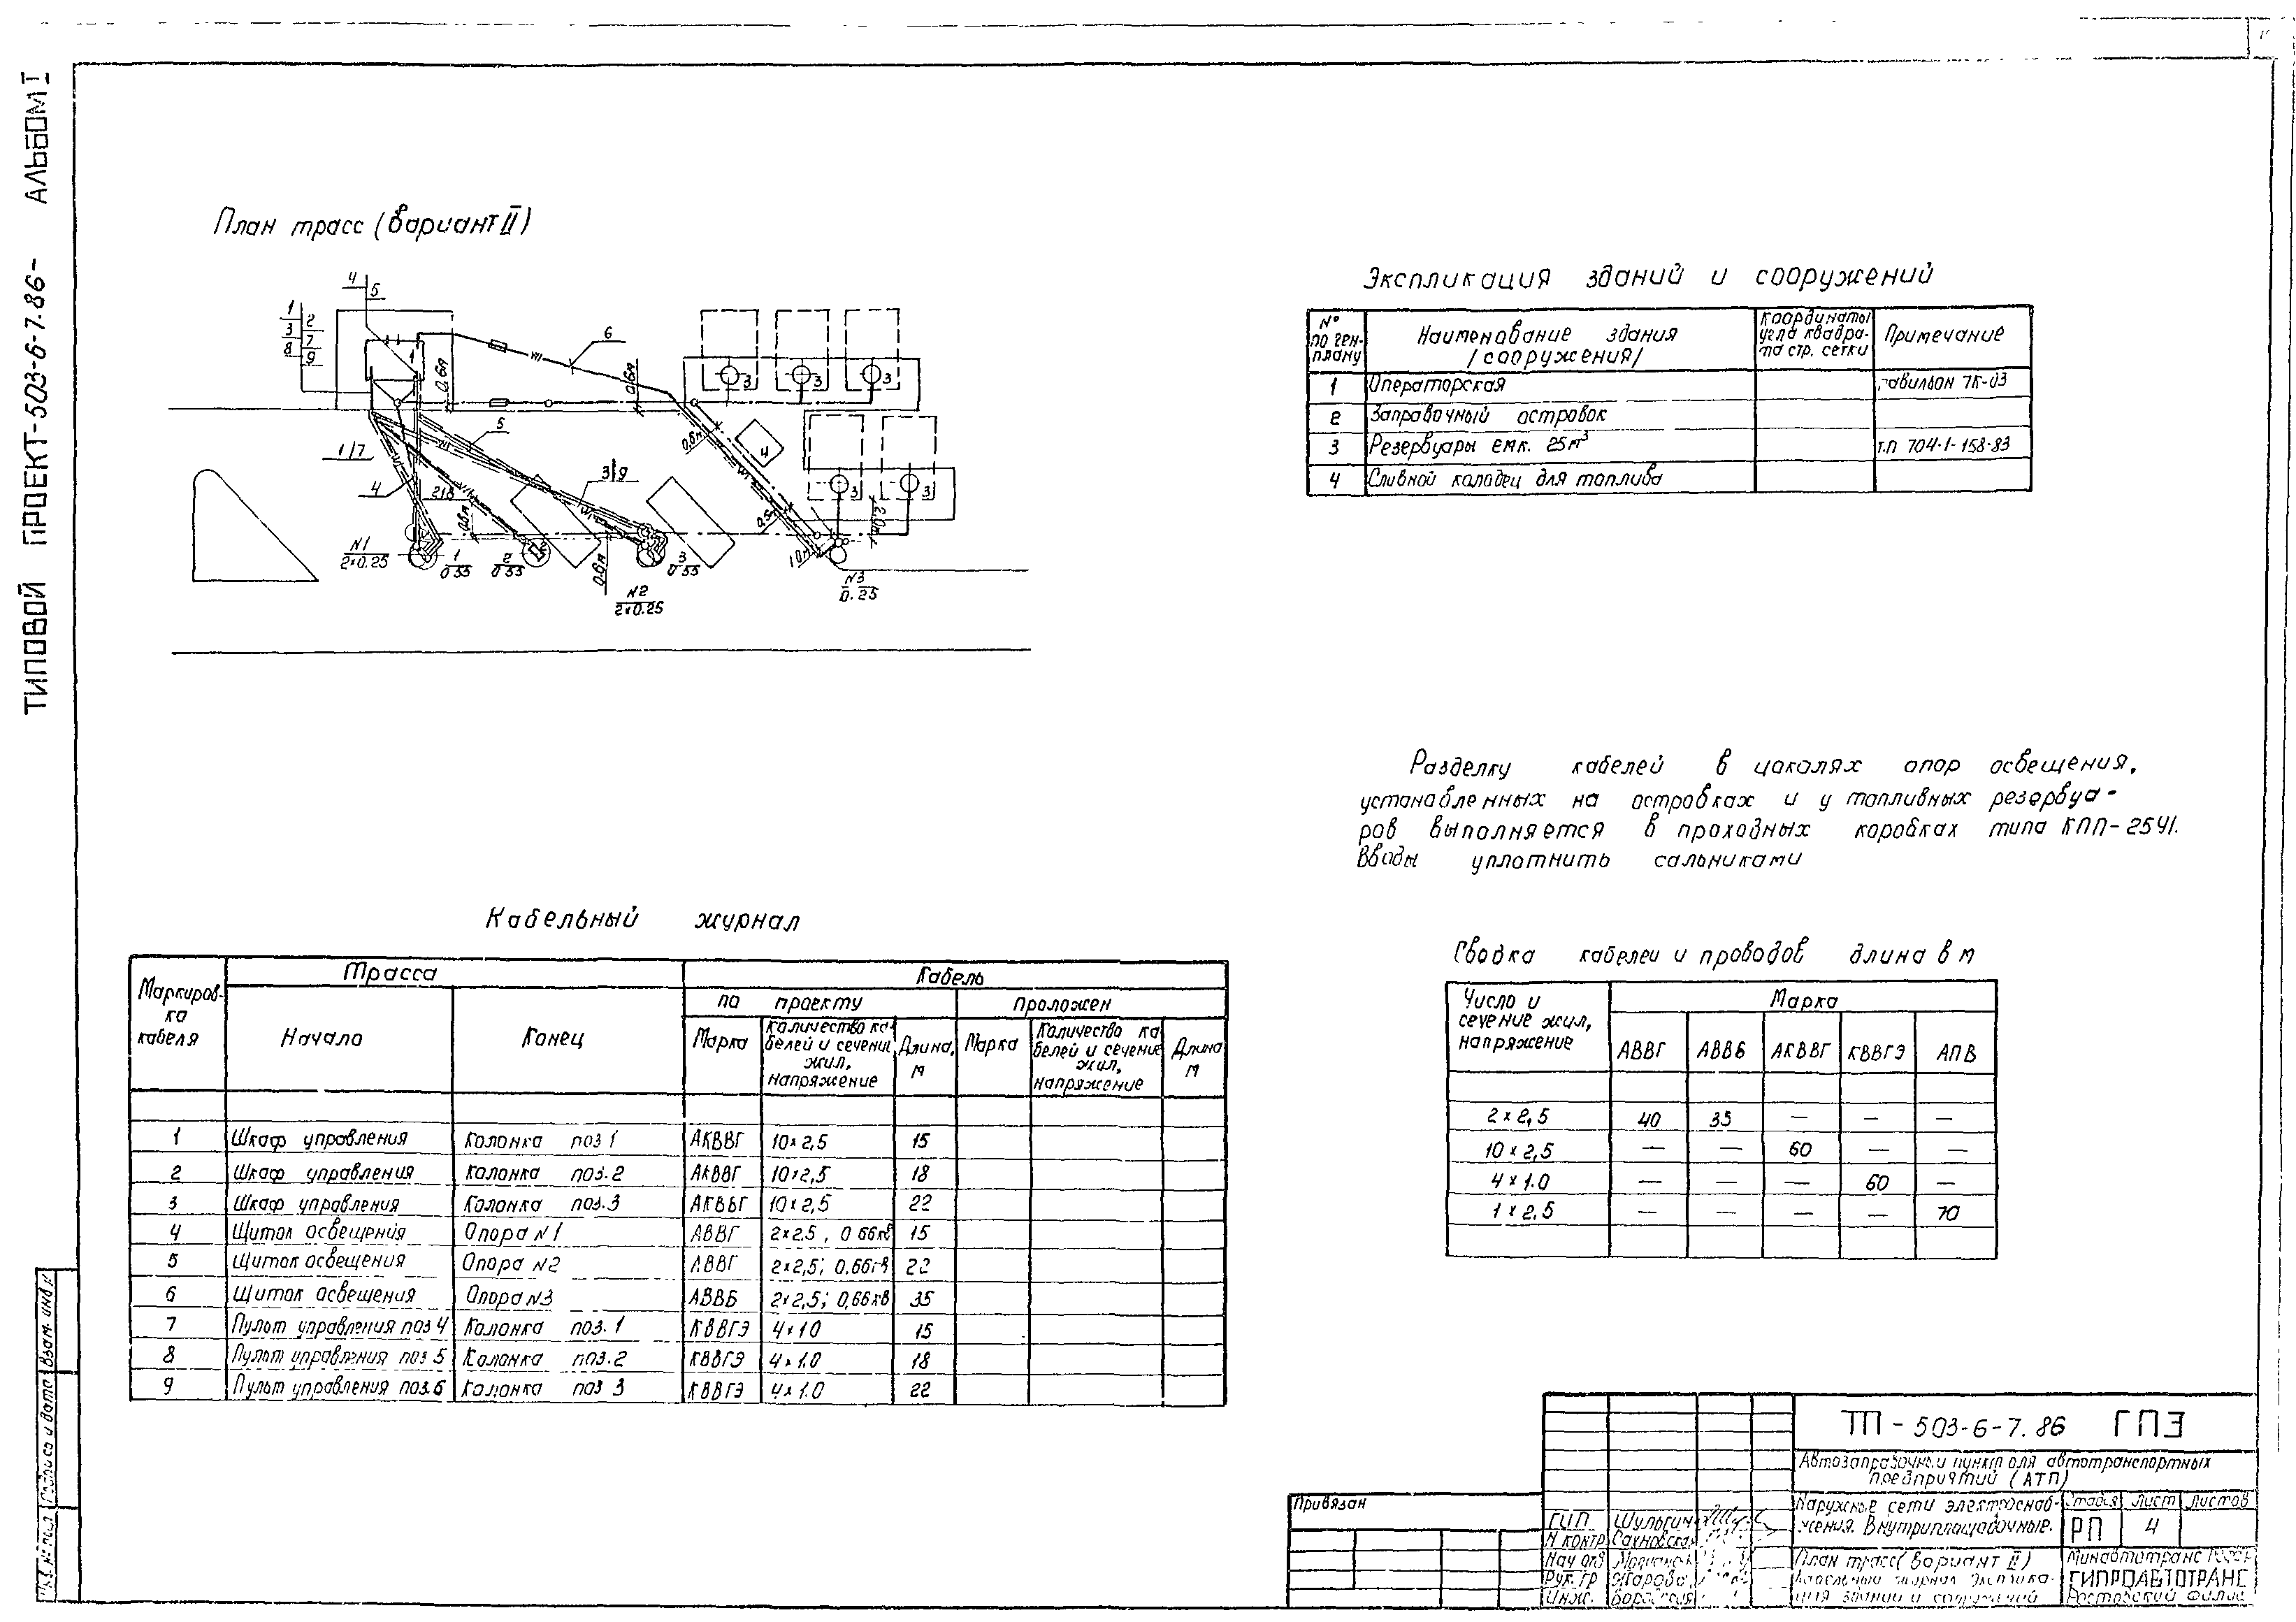 ТИПОВОЙ ПРОЕКТ-503-6-7.86- АЛЬБОМ I
План трасс (вариант II)
4
5
1
2
3
7
8
9
6
0.6м
0.6м
3
3
3
5
1/7
4
2/8
3/9
0.8м
4
0.5м
3
3
0.8м
1.0м
0.8м
N1
2×0.25
1
0.55
2
0.55
3
0.55
N2
2×0.25
N3
0.25
Экспликация зданий и сооружений
N° по ген-плану
Наименование здания /сооружения/
Координаты угла квадра-та стр. сетки
Примечание
1 Операторская павильон 7К-03
2 Заправочный островок
3 Резервуары емк. 25м³ т.п 704-1-158-83
4 Сливной колодец для топлива
Разделку кабелей в цоколях опор освещения,
установленных на островках и у топливных резервуа-
ров выполняется в проходных коробках типа КПП-25У1.
Вводы уплотнить сальниками
Кабельный журнал
Маркиров-ка кабеля
Трасса
Кабель
Начало
Конец
по проекту
Проложен
Марка
Количество ка-белей и сечение жил, напряжение
Длина, м
Марка
Количество ка белей и сечение жил, напряжение
Длина м
1 Шкаф управления Колонка поз 1 АКВВГ 10×2,5 15
2 Шкаф управления Колонка поз.2 АКВВГ 10×2,5 18
3 Шкаф управления Колонка поз.3 АКВВГ 10×2,5 22
4 Щиток освещения Опора N1 АВВГ 2×2.5, 0 66кв 15
5 Щиток освещения Опора N2 АВВГ 2×2,5; 0.66кв 22
6 Щиток освещения Опора N3 АВВБ 2×2,5; 0,66кв 35
7 Пульт управления поз 4 Колонка поз.1 КВВГЭ 4×1 0 15
8 Пульт управления поз 5 Колонка поз.2 КВВГЭ 4×1.0 18
9 Пульт управления поз.6 Колонка поз 3 КВВГЭ 4×1.0 22
Сводка кабелей и проводов длина в м
Число и сечение жил, напряжение
Марка
АВВГ АВВБ АКВВГ КВВГЭ АПВ
2×2,5 40 35 — — —
10×2,5 — — 60 — —
4×1.0 — — — 60 —
1×2.5 — — — — 70
ТП-503-6-7.86 ГПЭ
Автозаправочный пункт для автотранспортных
предприятий (АТП)
Наружные сети электроснаб-
жения. Внутриплощадочные.
Стадия Лист Листов
РП 4
План трасс (вариант II)
Кабельный журнал Эксплика-
ция зданий и сооружений
Минавтотранс РСФСР
ГИПРОАВТОТРАНС
Ростовский филиал
Привязан
ГИП Шульгин
Н контр Сахновская
Нач отд
Рук. гр Жарова
Инж.
Взам. инв. №
Подпись и дата
Инв. № подл